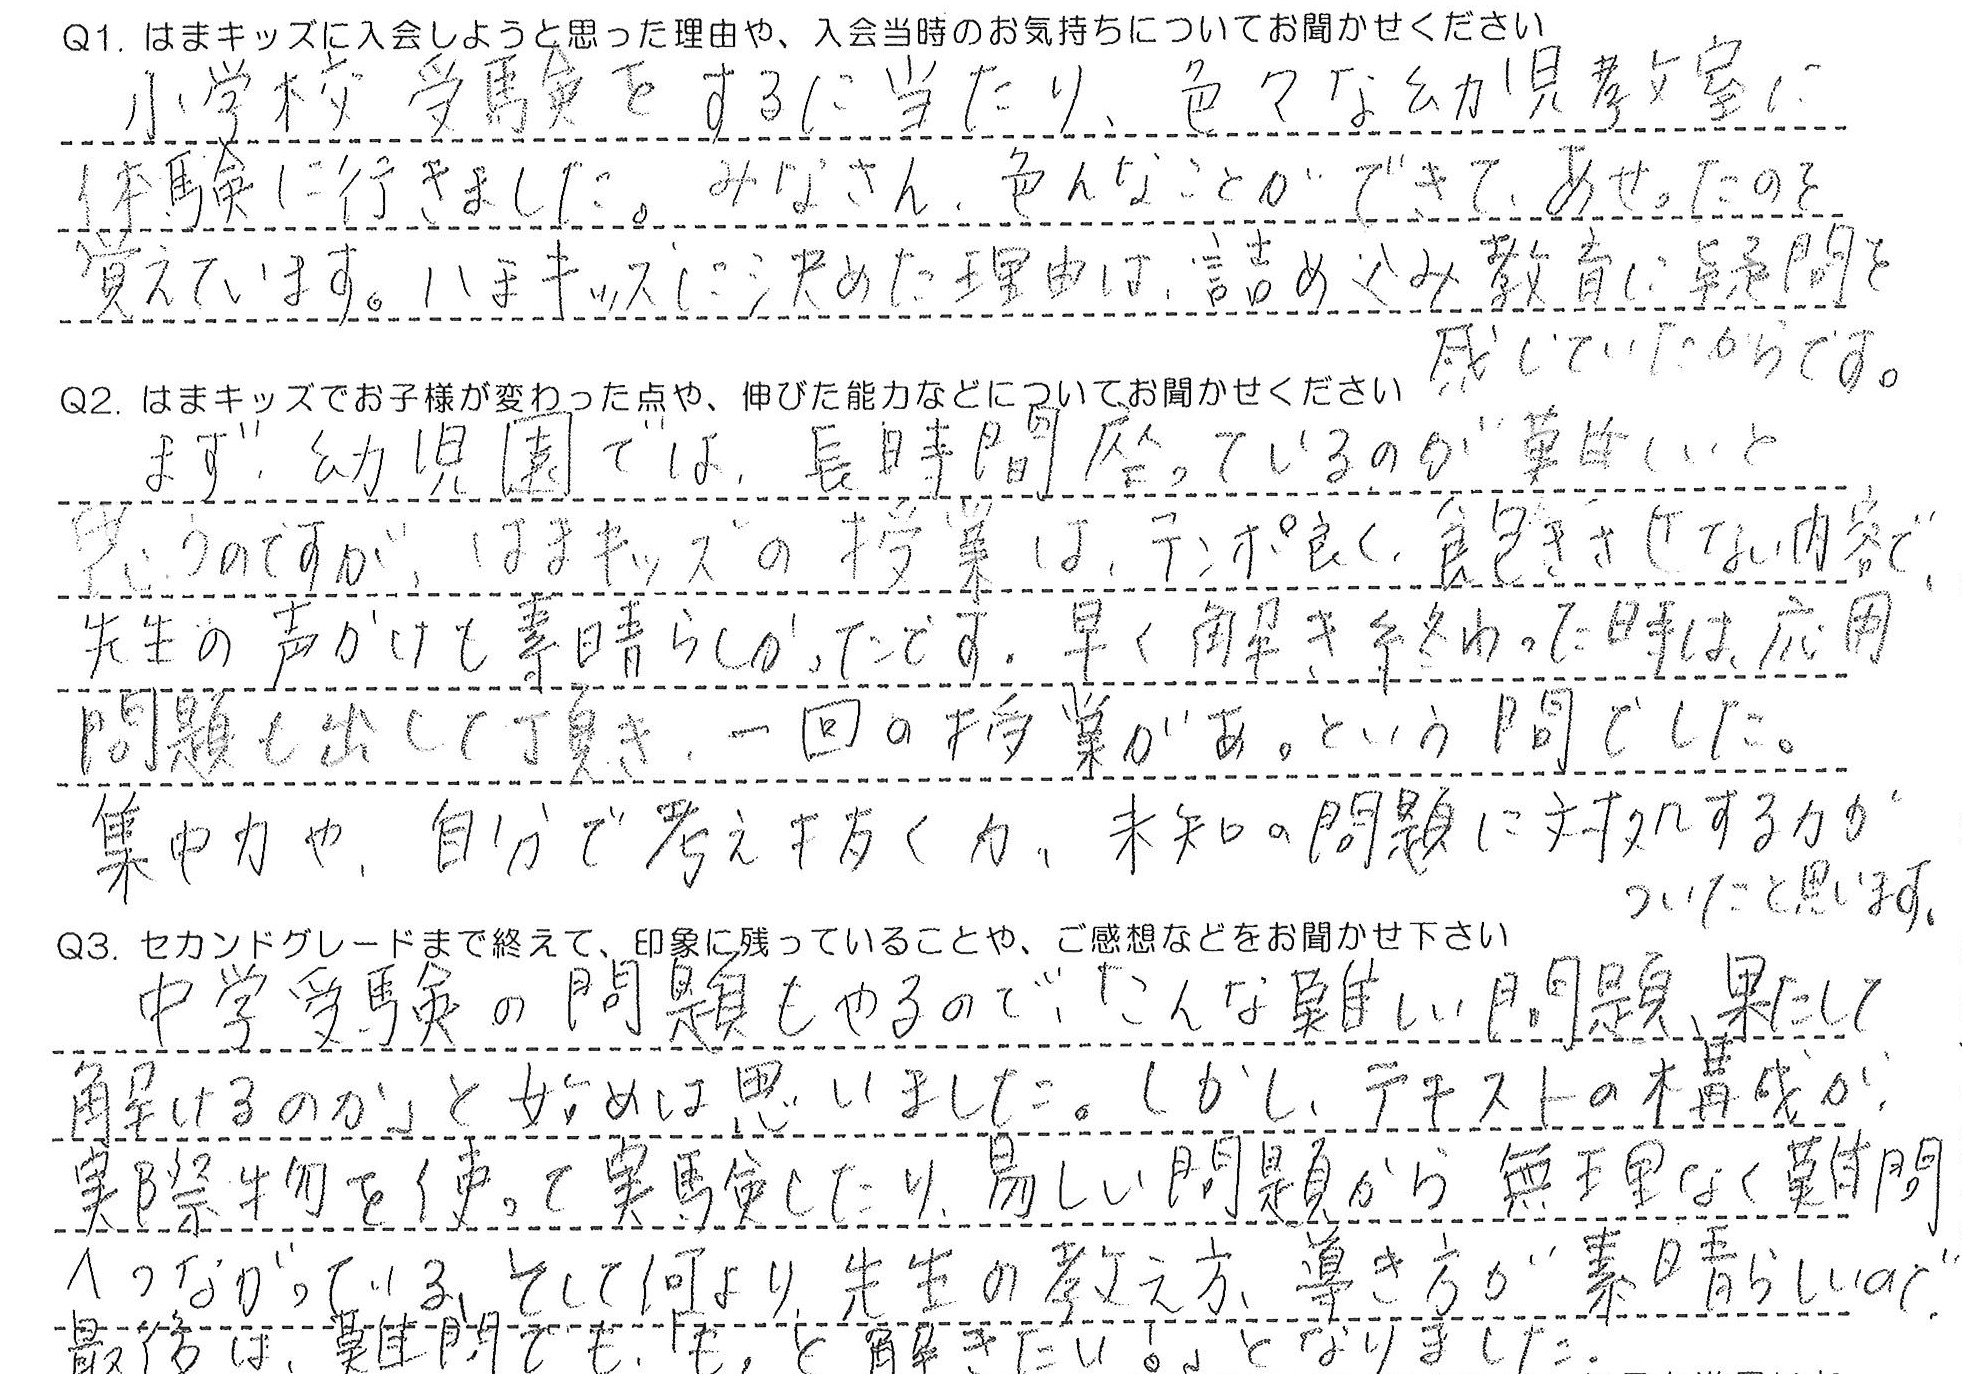 Q1. はまキッズに入会しようと思った理由や、入会当時のお気持ちについてお聞かせください
小学校受験をするに当たり、色々な幼児教室に
体験に行きました。みなさん、色んなことができて、あせったのを
覚えています。ハまキッズに決めた理由は、詰め込み教育に疑問を
感じていたからです。
Q2. はまキッズでお子様が変わった点や、伸びた能力などについてお聞かせください
まず、幼児園では、長時間座っているのが難しいと
思うのですが、はまキッズの授業は、テンポ良く、飽きさせない内容で、
先生の声かけも素晴らしかったです。早く解き終わった時は、応用
問題も出して頂き、一回の授業があっという間でした。
集中力や、自分で考え抜く力、未知の問題に対処する力が
ついたと思います。
Q3. セカンドグレードまで終えて、印象に残っていることや、ご感想などをお聞かせ下さい
中学受験の問題もやるので、「こんな難しい問題、果たして
解けるのか」と始めは思いました。しかし、テキストの構成が、
実際物を使って実験したり、易しい問題から無理なく難問
へつながっている、そして何より、先生の教え方、導き方が素晴らしいので、
最後は、難問でも、「もっと解きたい！」となりました。